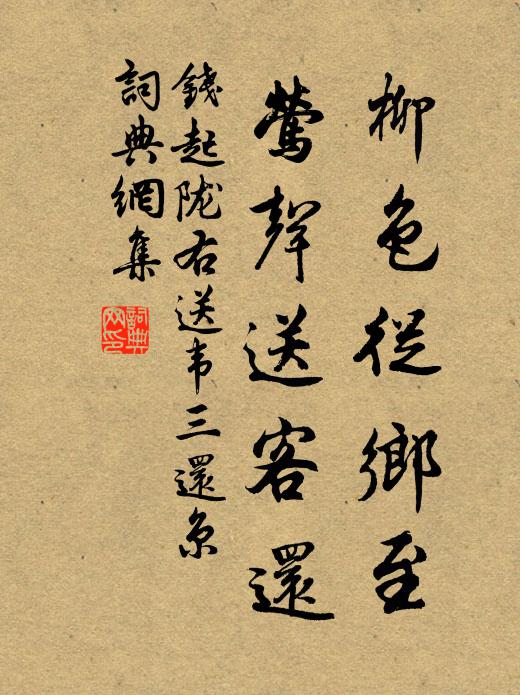 柳色從鄉至
鶯聲送客還
錢起陇右送韦三還京
詞典網集
詞典网印